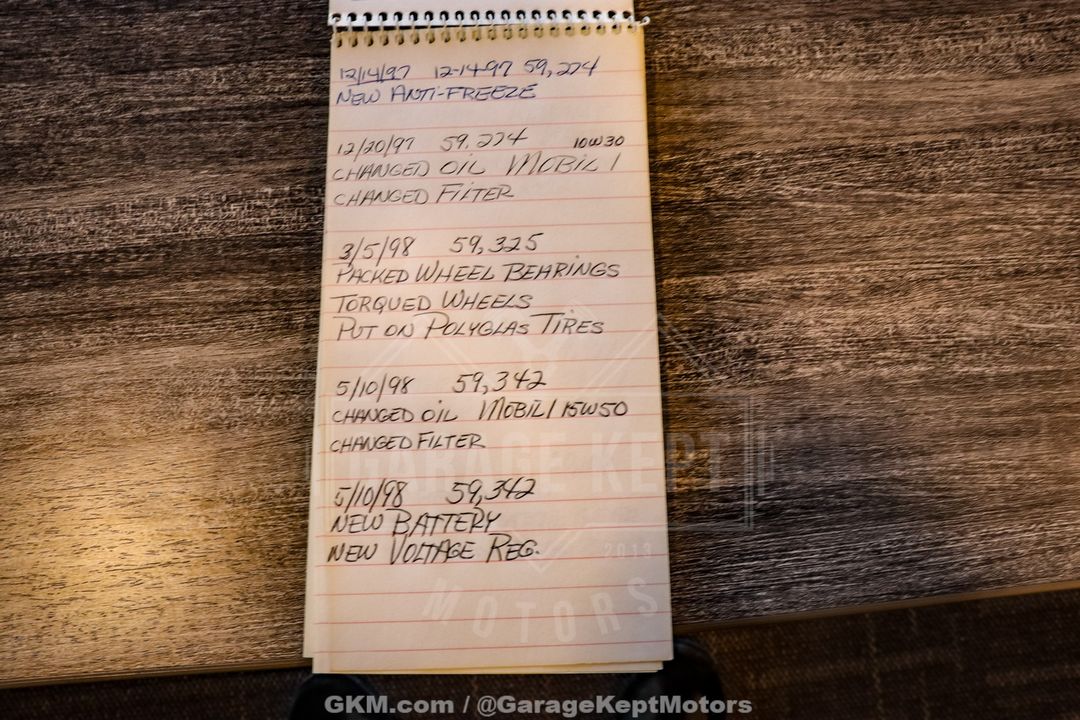 12/14/97 12-14-97 59,274
NEW ANTI-FREEZE
12/20/97 59,274 10W30
CHANGED OIL MOBIL 1
CHANGED FILTER
3/5/98 59,325
PACKED WHEEL BEARINGS
TORQUED WHEELS
PUT ON POLYGLAS TIRES
5/10/98 59,342
CHANGED OIL MOBIL 1 15W50
CHANGED FILTER
5/10/98 59,342
NEW BATTERY
NEW VOLTAGE REG.
GARAGE KEPT
2013
MOTORS
GKM.com / @GarageKeptMotors